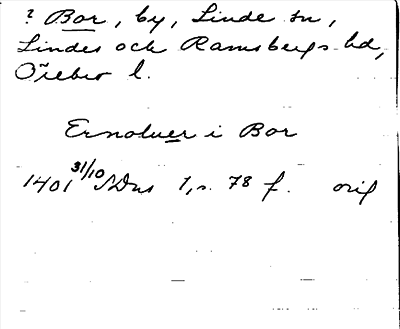 ? Bor, by, Linde sn,
Lindes och Ramsbergs hd,
Örebro l.
Ernoluer i Bor
1401 31/10 SDns 1, s. 78 f. orig